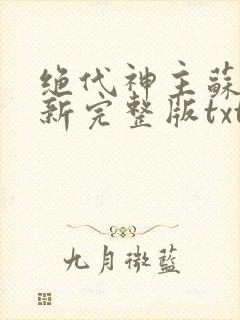 绝代神主蘇
新完整版txt
九月微藍